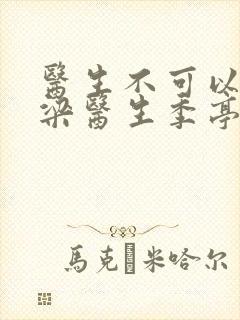 醫生不可以
梁醫生季亭
馬克·米哈尔